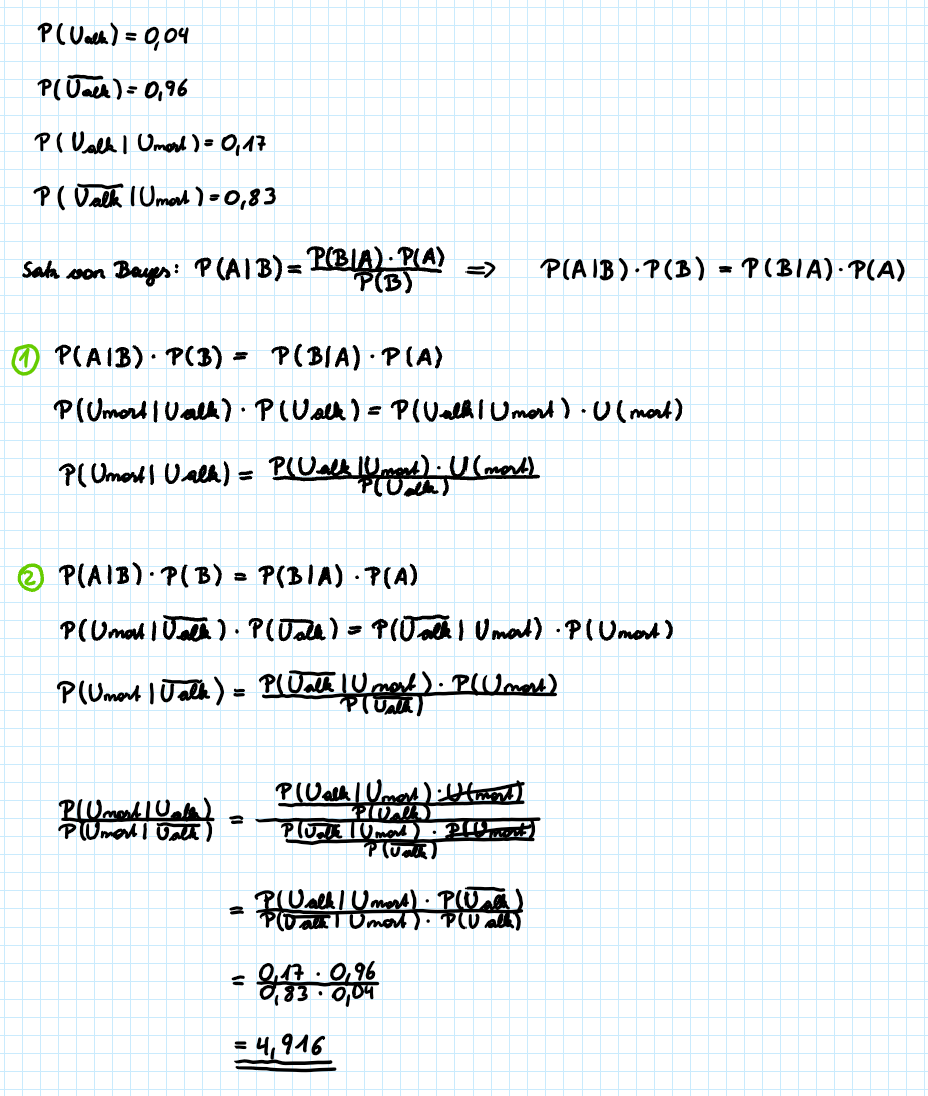 P(Ualk) = 0,04
P(U̅a̅l̅k̅) = 0,96
P(Ualk | Umort) = 0,17
P(U̅a̅l̅k̅ | Umort) = 0,83
Satz von Bayes: P(A|B) = P(B|A) · P(A) / P(B) ⟹ P(A|B) · P(B) = P(B|A) · P(A)
① P(A|B) · P(B) = P(B|A) · P(A)
P(Umort | Ualk) · P(Ualk) = P(Ualk | Umort) · U(mort)
P(Umort | Ualk) = P(Ualk | Umort) · U(mort) / P(Ualk)
② P(A|B) · P(B) = P(B|A) · P(A)
P(Umort | U̅a̅l̅k̅) · P(U̅a̅l̅k̅) = P(U̅a̅l̅k̅ | Umort) · P(Umort)
P(Umort | U̅a̅l̅k̅) = P(U̅a̅l̅k̅ | Umort) · P(Umort) / P(U̅a̅l̅k̅)
P(Umort | Ualk) / P(Umort | U̅a̅l̅k̅) = (P(Ualk | Umort) · U(mort) / P(Ualk)) / (P(U̅a̅l̅k̅ | Umort) · P(Umort) / P(U̅a̅l̅k̅))
= P(Ualk | Umort) · P(U̅a̅l̅k̅) / P(U̅a̅l̅k̅ | Umort) · P(Ualk)
= 0,17 · 0,96 / 0,83 · 0,04
= 4,916